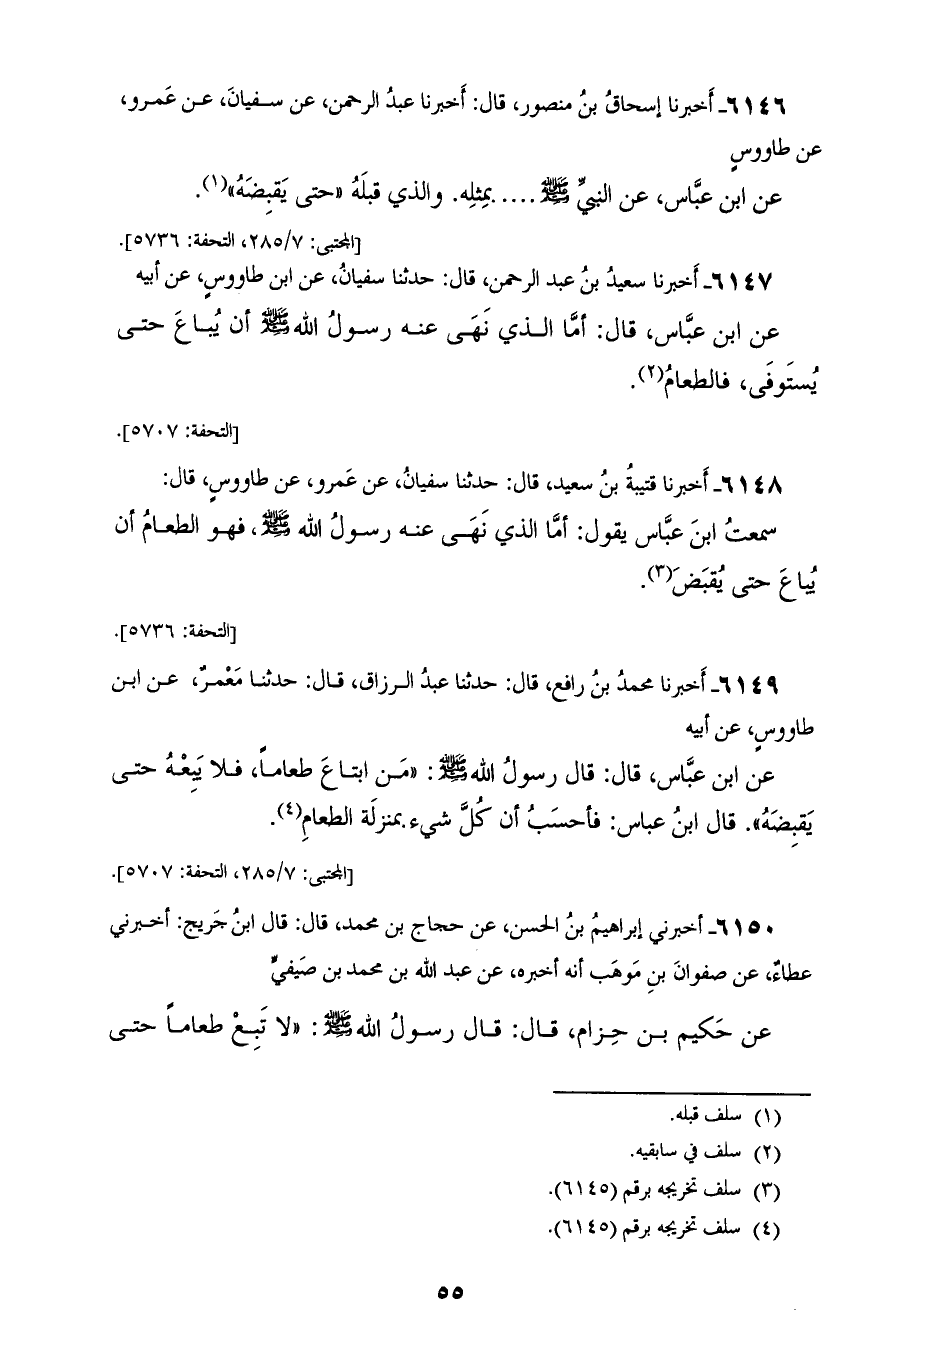 ٦١٤٦ـ أَخبرنا إسحاقُ بنُ منصور، قال: أَخبرنا عبدُ الرحمن، عن سفيانَ، عن عَمرو،
عن طاووسٍ
عن ابن عبَّاس، عن النبيِّ ﷺ .....بمِثلِه. والذي قبلَهُ «حتى يَقبِضَهُ»(١).
[المجتبى: ٢٨٥/٧، التحفة: ٥٧٣٦].
٦١٤٧ـ أَخبرنا سعيدُ بنُ عبد الرحمن، قال: حدثنا سفيانُ، عن ابن طاووسٍ، عن أبيه
عن ابن عبَّاس، قال: أمَّا الذي نَهَى عنه رسولُ الله ﷺ أن يُباعَ حتى
يُستَوفَى، فالطعامُ(٢).
[التحفة: ٥٧٠٧].
٦١٤٨ـ أَخبرنا قتيبةُ بنُ سعيد، قال: حدثنا سفيانُ، عن عَمرو، عن طاووسٍ، قال:
سمعتُ ابنَ عبَّاس يقول: أمَّا الذي نَهَى عنه رسولُ الله ﷺ، فهو الطعامُ أن
يُباعَ حتى يُقبَضَ(٣).
[التحفة: ٥٧٣٦].
٦١٤٩ـ أَخبرنا محمدُ بنُ رافع، قال: حدثنا عبدُ الرزاق، قال: حدثنا مَعْمرٌ، عن ابن
طاووسٍ، عن أبيه
عن ابن عبَّاس، قال: قال رسولُ الله ﷺ: «مَن ابتاعَ طعاماً، فلا يَبِعْهُ حتى
يَقبِضَهُ». قال ابنُ عباس: فأحسَبُ أن كُلَّ شيء بمنزلَة الطعامِ(٤).
[المجتبى: ٢٨٥/٧، التحفة: ٥٧٠٧].
٦١٥٠ـ أخبرني إبراهيمُ بنُ الحسن، عن حجاج بن محمد، قال: قال ابنُ جَريج: أخبرني
عطاءٌ، عن صفوانَ بنِ مَوهَب أنه أخبره، عن عبد الله بن محمد بن صَيفيٍّ
عن حَكيم بن حِزام، قال: قال رسولُ الله ﷺ: «لا تَبِعْ طعاماً حتى
(١) سلف قبله.
(٢) سلف في سابقيه.
(٣) سلف تخريجه برقم (٦١٤٥).
(٤) سلف تخريجه برقم (٦١٤٥).
٥٥